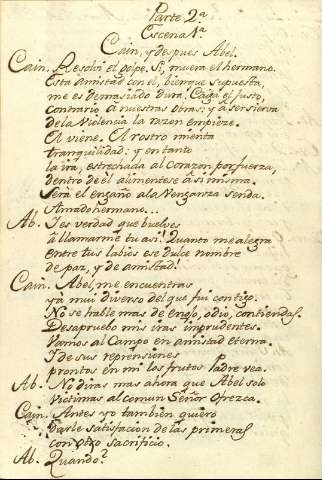 Parte 2ª
Escena 1ª
Cain, y despues Abel.
Cain. Resolví el golpe. Si, muera el hermano.
Esta amistad con el, bienque supuesta,
me es demasiado dura. Caiga el justo,
contrario â nuestras otras; y â ser sierva
de la Violencia la razon empieze.
El viene. El rostro mienta
tranquilidad: y en tanto
la ira, estrechada al corazon por fuerza,
dentro de èl alimentese â si misma.
Serà el engaño a la Venganza senda.
Amado hermano...
Ab. I es verdad que buelves
â llamarme tu asi! Quanto me alegra
entre tus labios ese dulce nombre
de paz, y de amistad!
Cain. Abel, me encuentras
ya mui diverso del que fui contigo.
No se hable mas de enojo, odio, contiendas.
Desapruebo mis iras imprudentes.
Vamos al Campo en amistad eterna.
I de sus reprensiones
prontos en mi los frutos Padre vea.
Ab. No diras mas ahora que Abel solo
Victimas al comun Señor ofrezca.
Cain. Antes yo tambien quiero
darle satisfacion de las primeras
con otro sacrificio.
Ab. Quando?